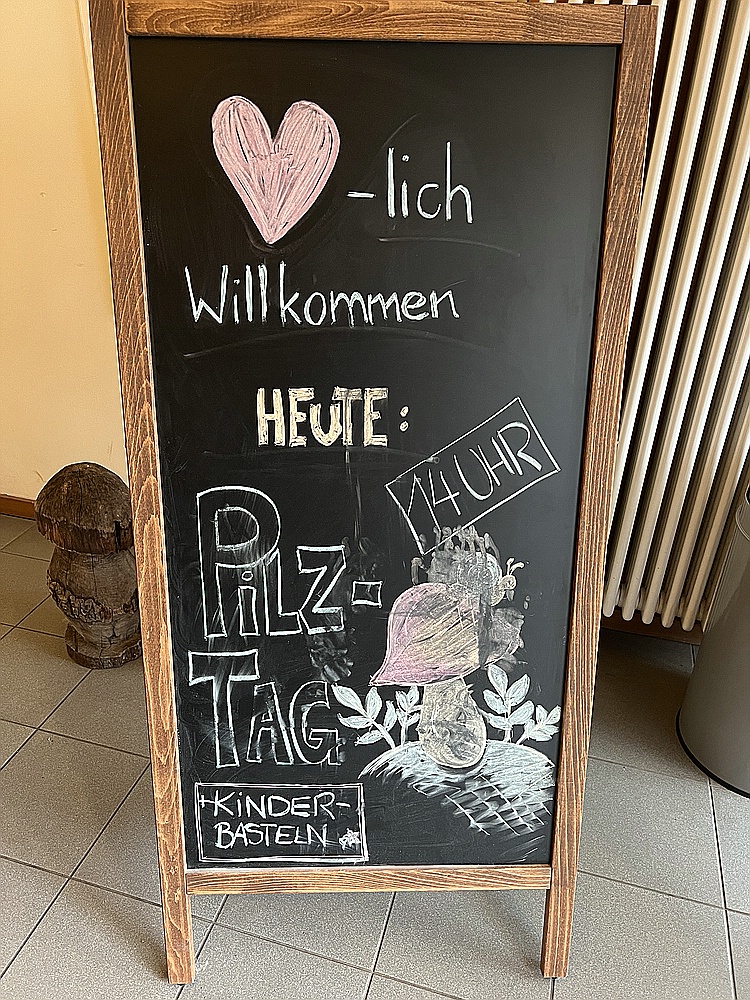 -lich
Willkommen
HEUTE:
14 UHR
PiLZ-
TAG
+KiNDER-
BASTELN